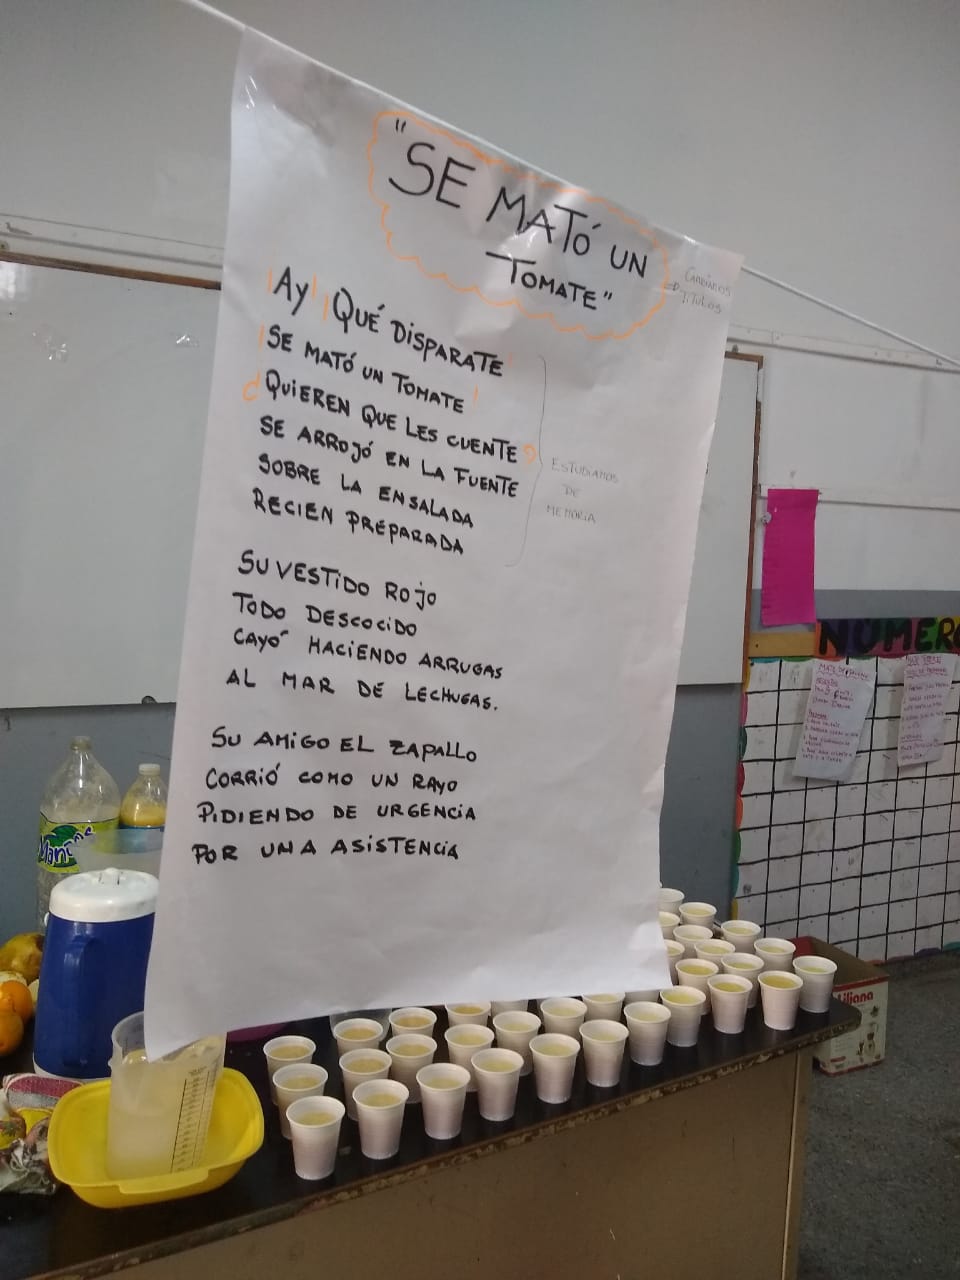 "SE MATÓ UN
TOMATE"
CAMBIAMOS
TÍTULOS
¡Ay! ¡QUÉ DISPARATE!
¡SE MATÓ UN TOMATE!
¿QUIEREN QUE LES CUENTE?
SE ARROJÓ EN LA FUENTE
SOBRE LA ENSALADA
RECIEN PREPARADA
ESTUDIAMOS
DE
MEMORIA
SU VESTIDO ROJO
TODO DESCOCIDO
CAYÓ HACIENDO ARRUGAS
AL MAR DE LECHUGAS.
SU AMIGO EL ZAPALLO
CORRIÓ COMO UN RAYO
PIDIENDO DE URGENCIA
POR UNA ASISTENCIA
NUMERO
Liliana